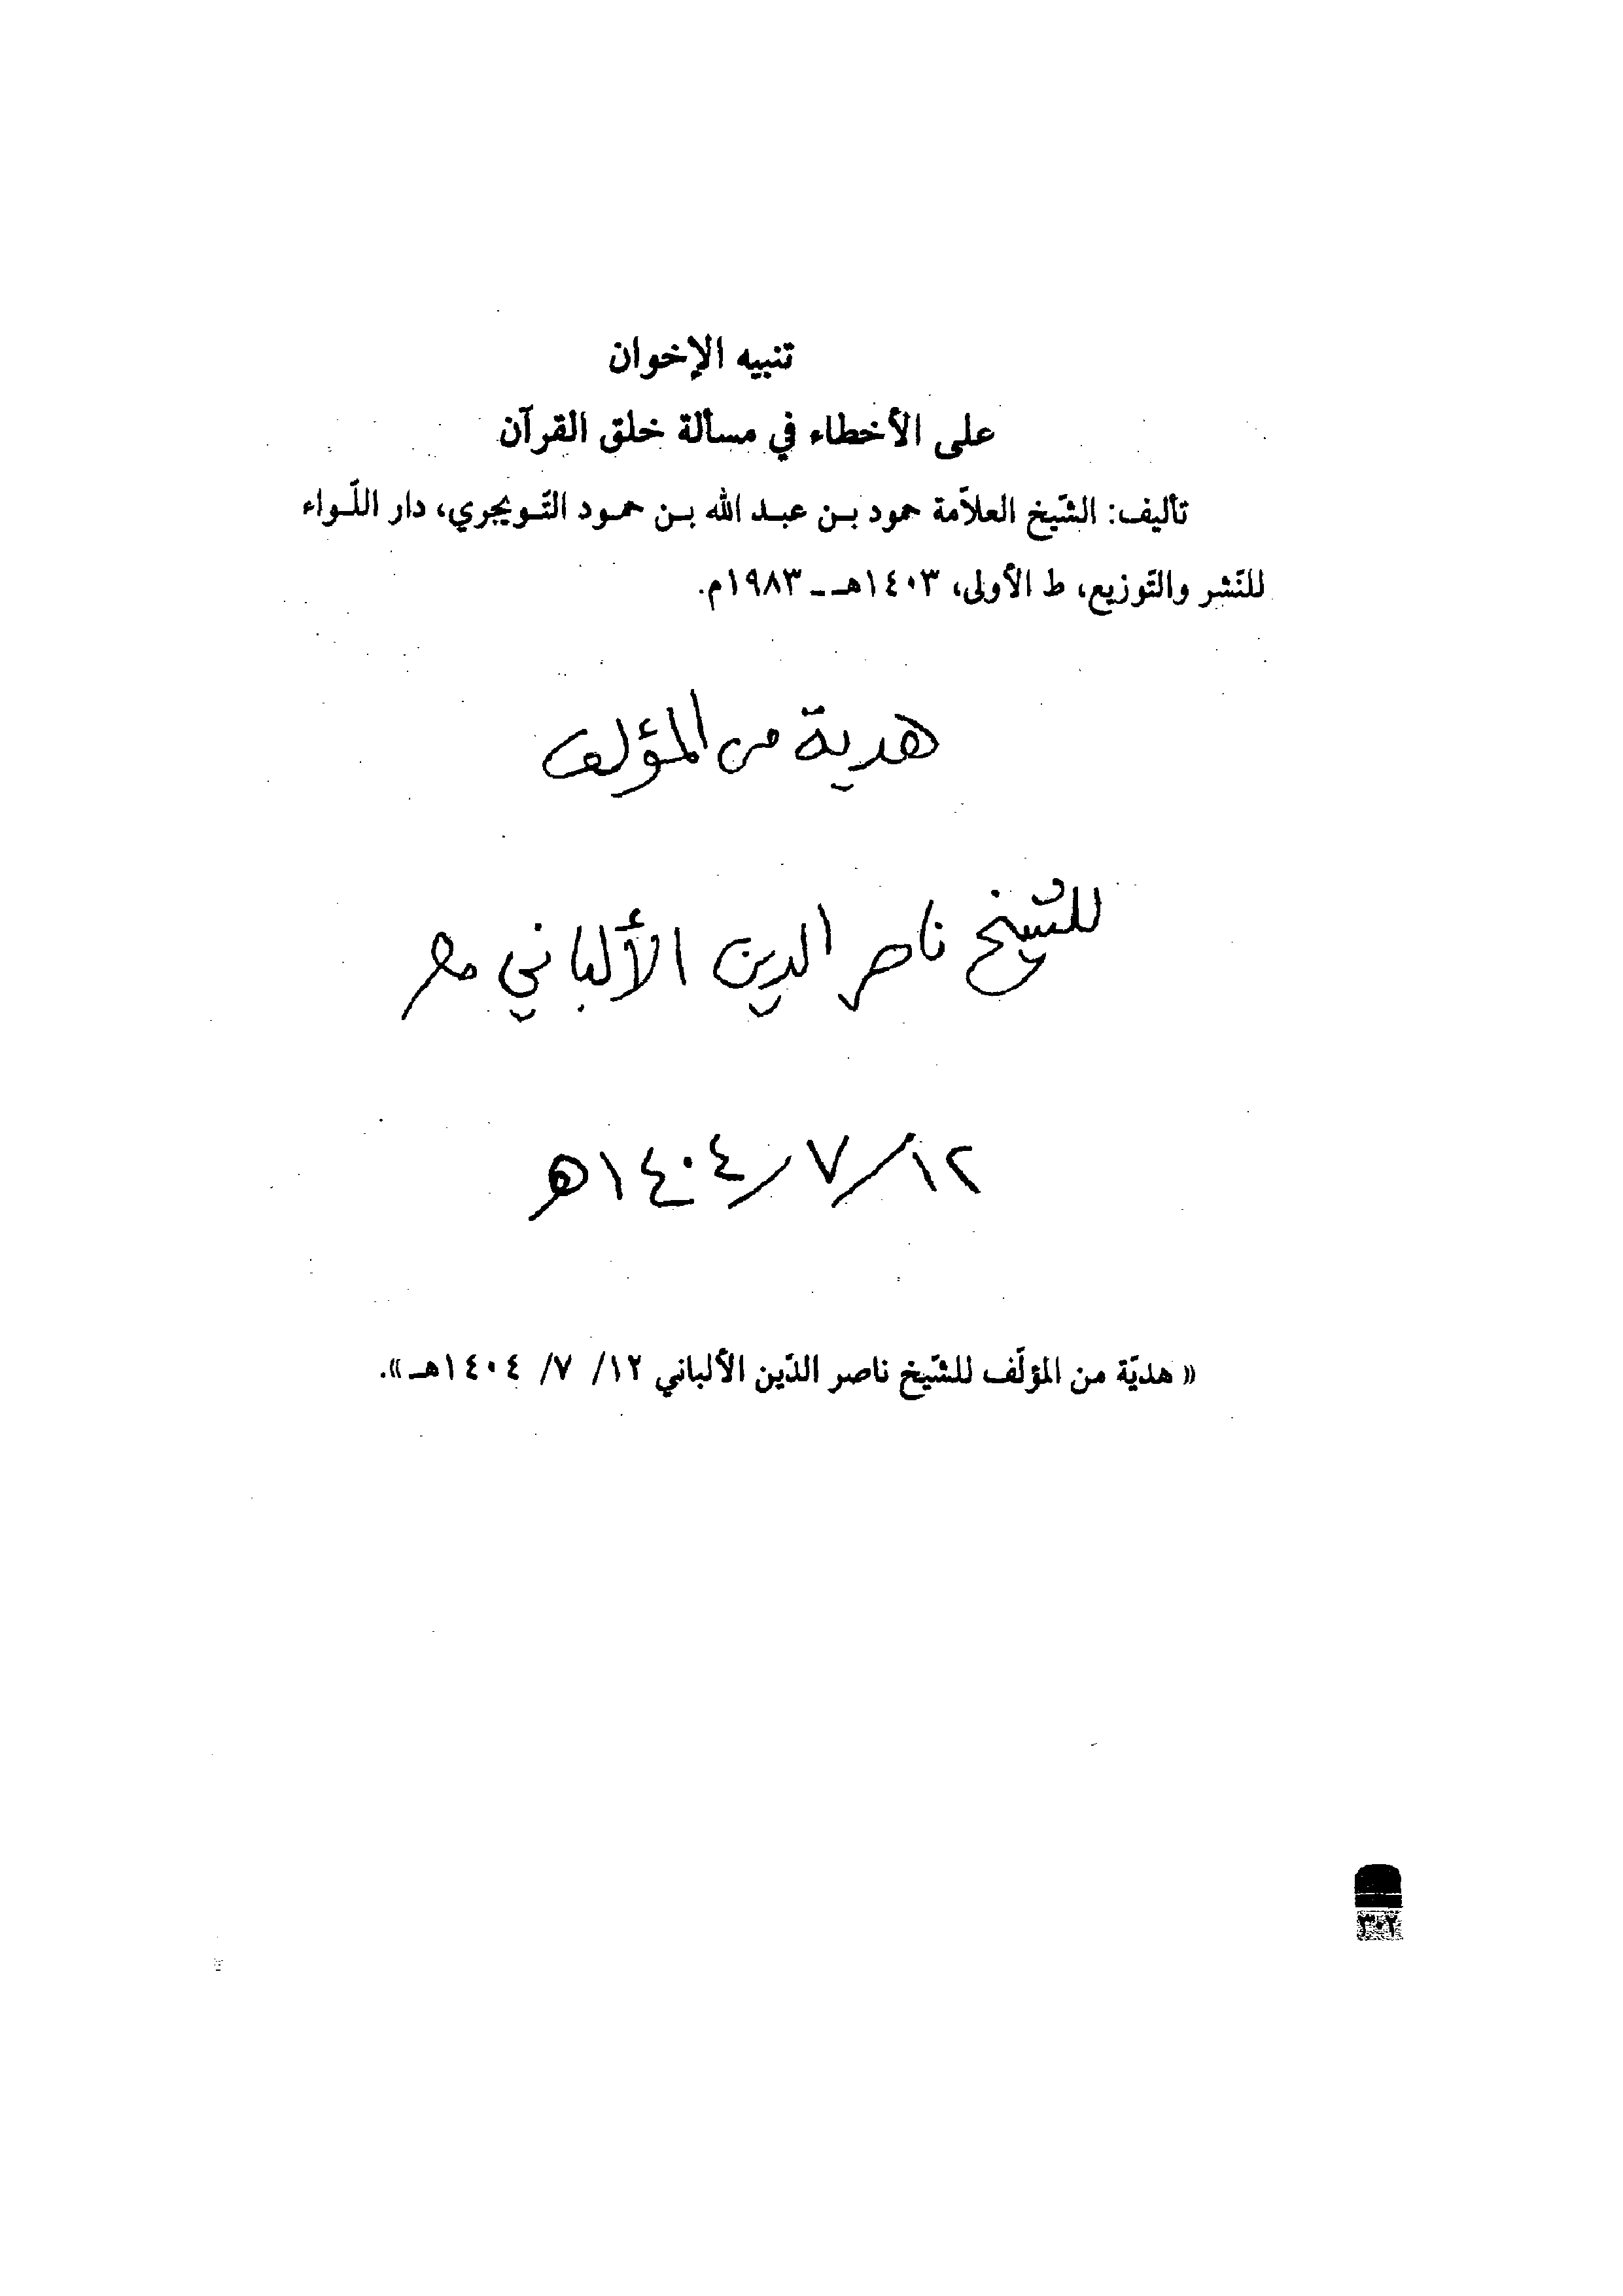 تنبيه الإخوان
على الأخطاء في مسألة خلق القرآن
تأليف: الشّيخ العلاّمة حمود بـن عبـد الله بـن حمـود التّـويجري، دار اللّـواء
للنّشر والتّوزيع، ط الأولى، ١٤٠٣هـ ـ ١٩٨٣م.
هدية من المؤلف
للشيخ ناصر الدين الألباني
١٢/٧/١٤٠٤ه
« هديّة من المؤلّف للشّيخ ناصر الدّين الألباني ١٢/ ٧/ ١٤٠٤هـ».
٣٠٢